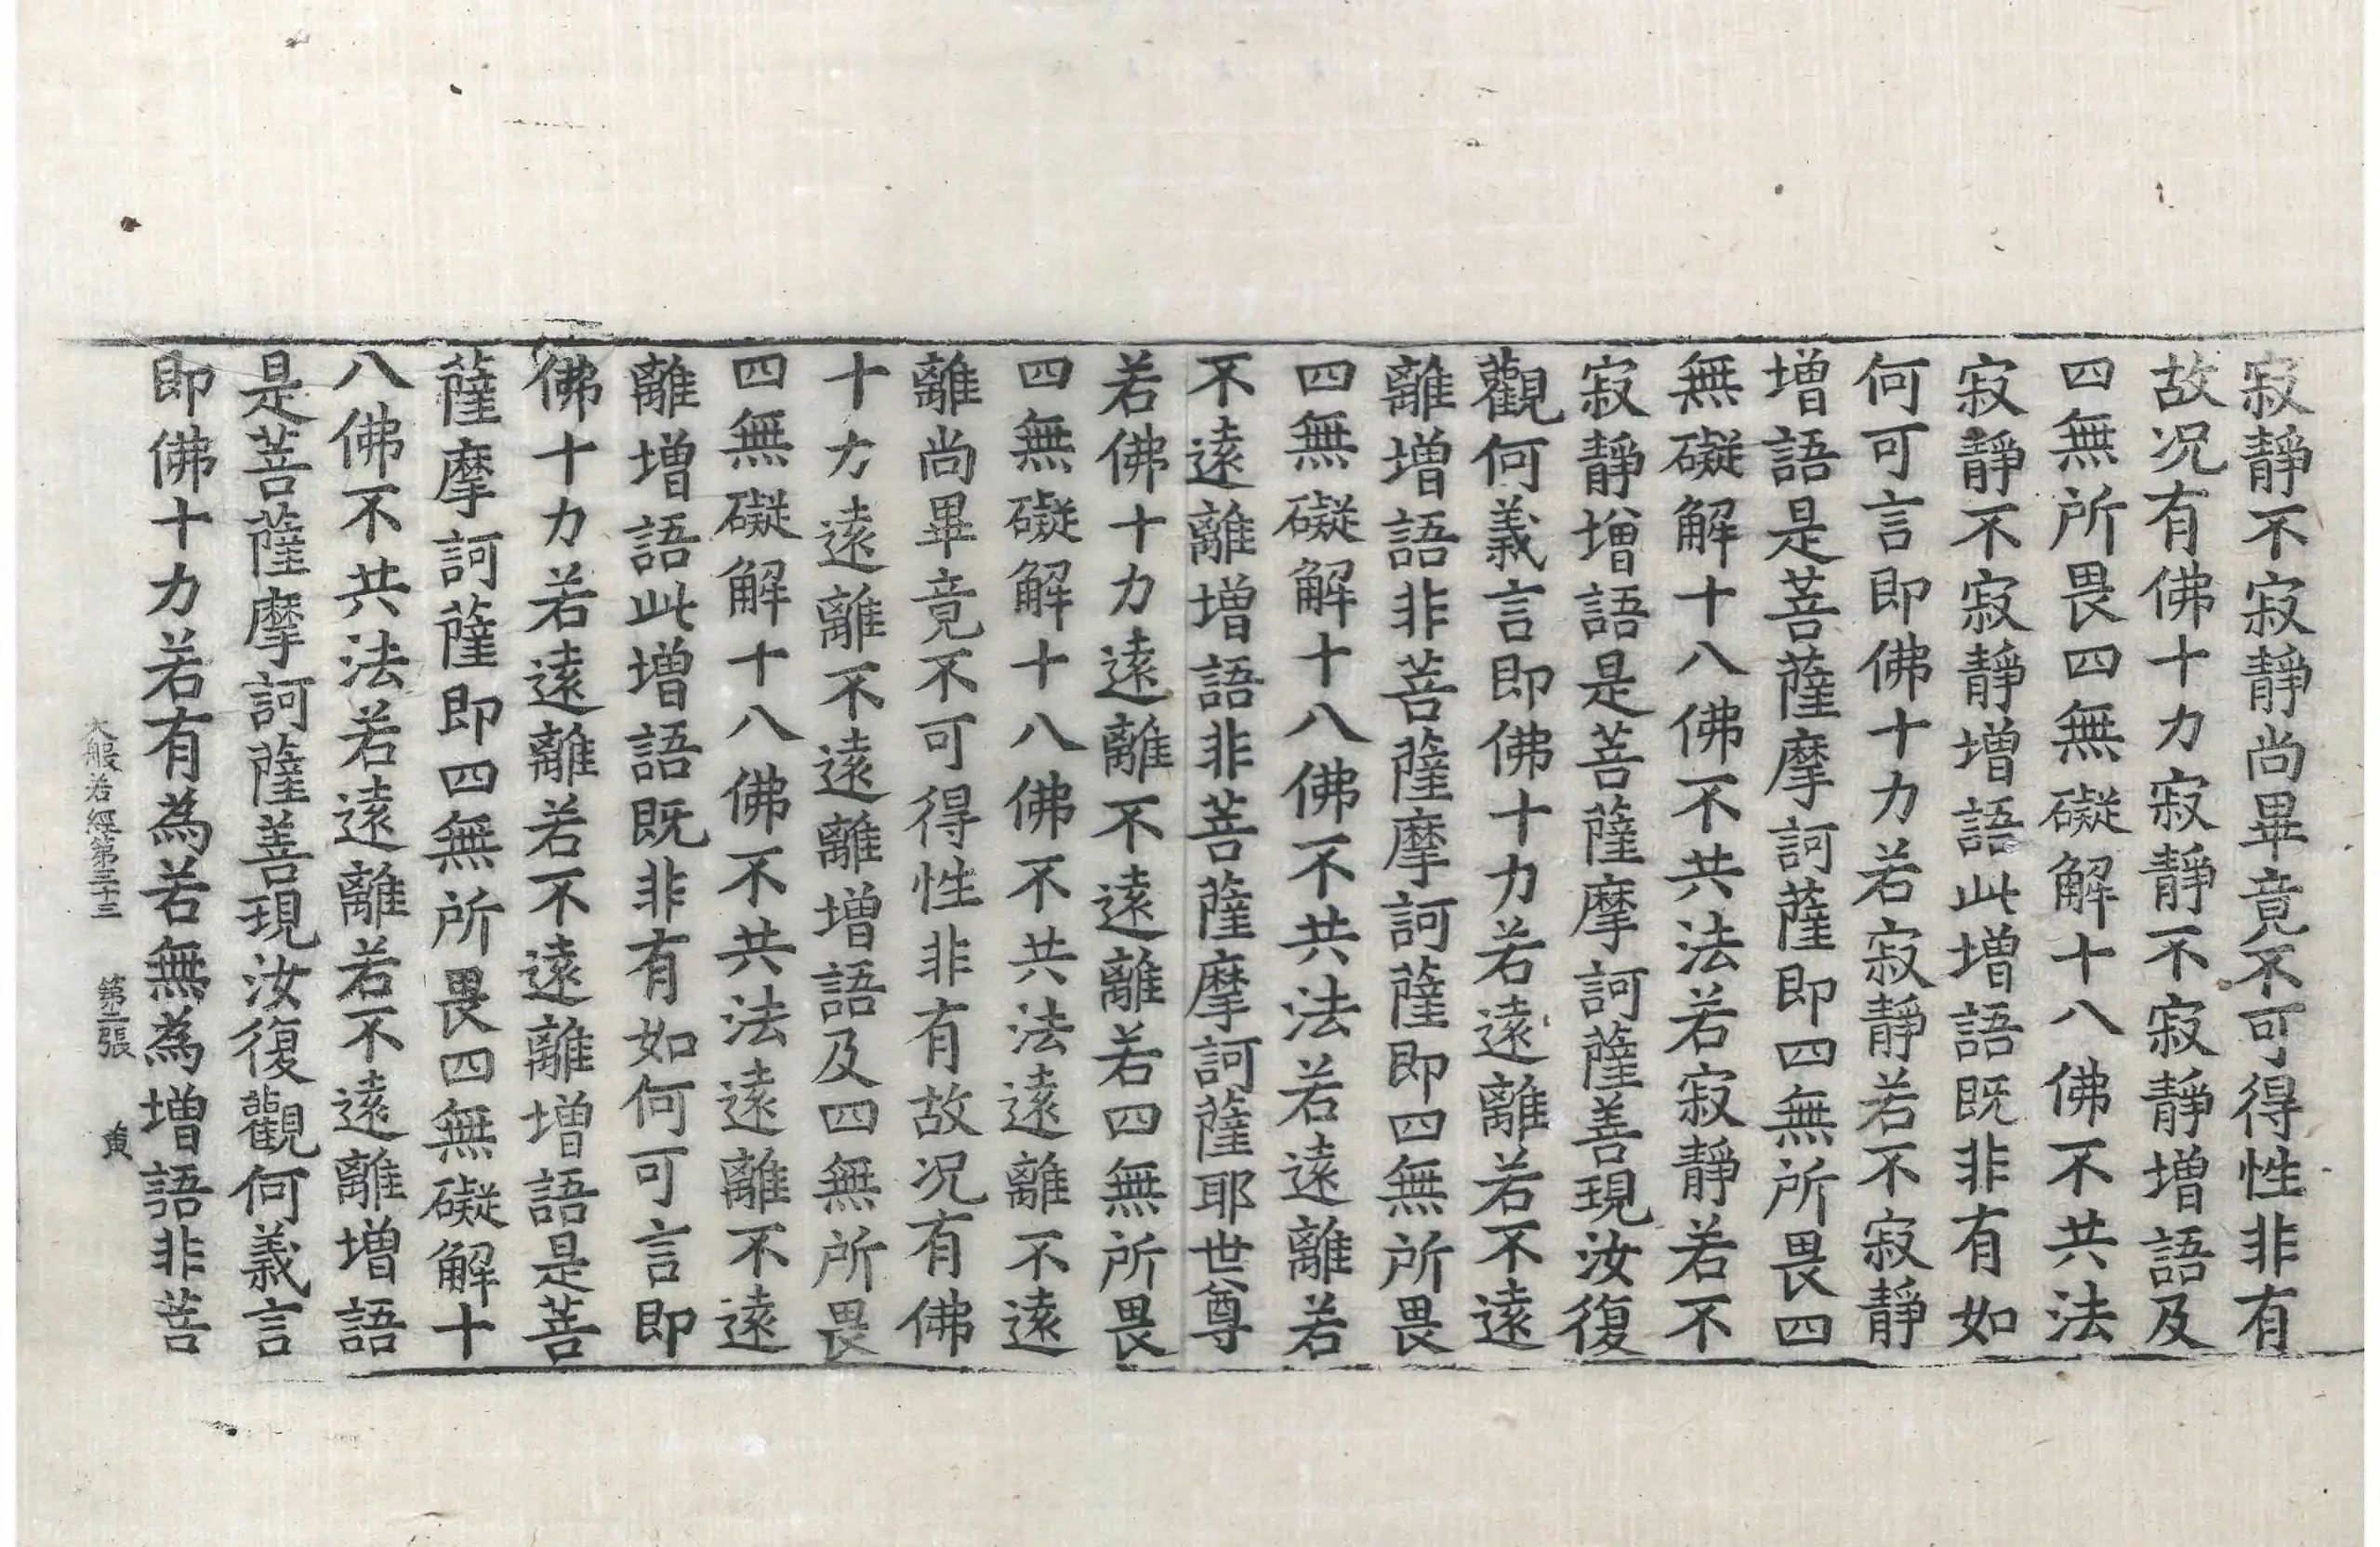 寂靜不寂靜尚畢竟不可得性非有
故况有佛十力寂靜不寂靜增語及
四無所畏四無礙解十八佛不共法
寂靜不寂靜增語此增語既非有如
何可言即佛十力若寂靜若不寂靜
增語是菩薩摩訶薩即四無所畏四
無礙解十八佛不共法若寂靜若不
寂靜增語是菩薩摩訶薩善現汝復
觀何義言即佛十力若遠離若不遠
離增語非菩薩摩訶薩即四無所畏
四無礙解十八佛不共法若遠離若
不遠離增語非菩薩摩訶薩耶世尊
若佛十力遠離不遠離若四無所畏
四無礙解十八佛不共法遠離不遠
離尚畢竟不可得性非有故况有佛
十力遠離不遠離增語及四無所畏
四無礙解十八佛不共法遠離不遠
離增語此增語既非有如何可言即
佛十力若遠離若不遠離增語是菩
薩摩訶薩即四無所畏四無礙解十
八佛不共法若遠離若不遠離增語
是菩薩摩訶薩善現汝復觀何義言
即佛十力若有為若無為增語非菩
大般若經第三十三 第二張 黄